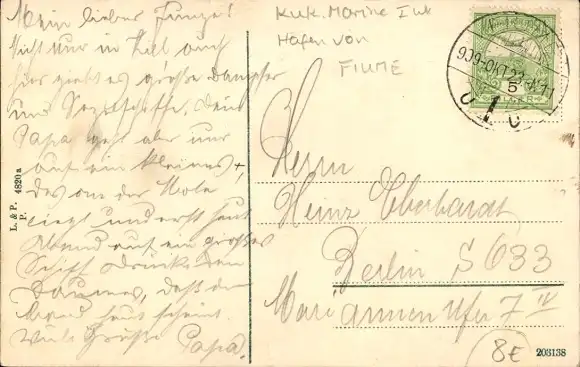 Mein lieber Junge!
Nicht nur in Kell auch
hier giebt es große Dampfer
und Segelschiffe, Dein
Papa geht aber nur
auf ein kleines,
das an der Mole
liegt und erst heut
Abend auf ein großes
Schiff drücke den
Daumen, daß der
Mond heut scheint.
Viele Grüße Papa.
K.u.K. Marine I
Hafen von
FIUME
909 OKT 23
5
Herrn
Heinz Eberhardt,
Berlin S 033
Mariannen Ufer 7 IV
L. & P. 4820a
P.
8E
203138